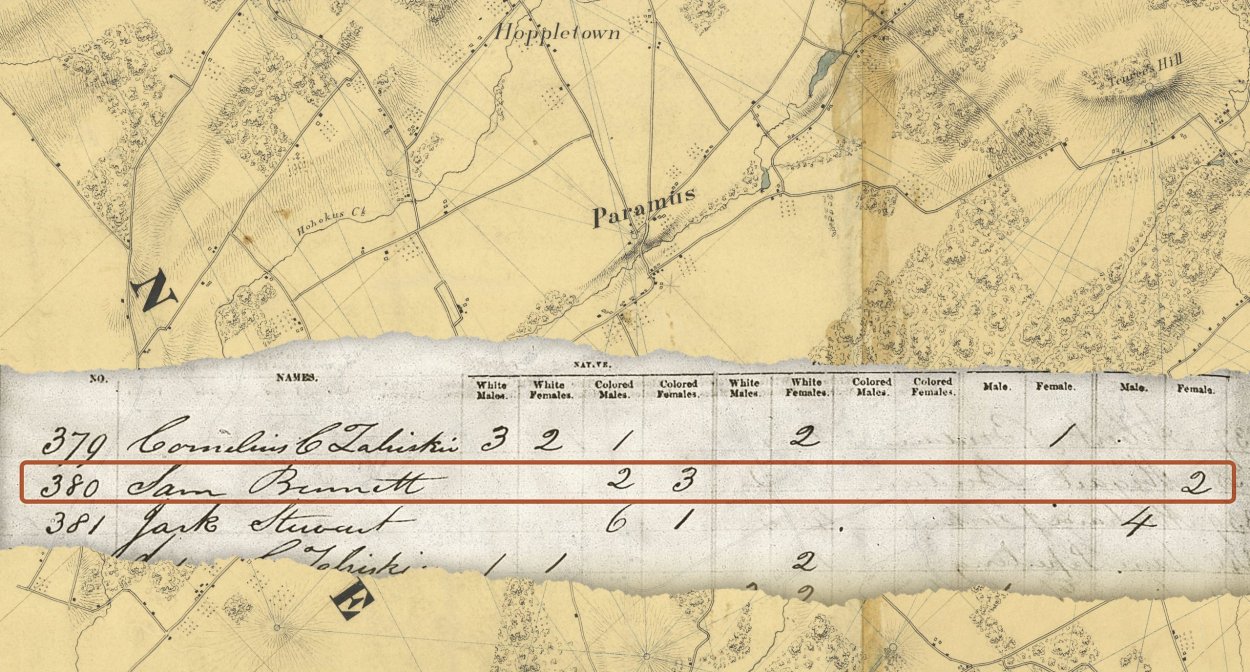 Hoppletown
Hill
Paramus
Hohokus Ck
N
NO. NAMES. NATIVE.
White Males. White Females. Colored Males. Colored Females. White Males. White Females. Colored Males. Colored Females. Male. Female. Male. Female.
379 Cornelius C Zabriskie 3 2 1 2 1
380 Sam Bennett 2 3 2
381 Jack Stewart 6 1 4
C Zabriskie 1 1 2
E